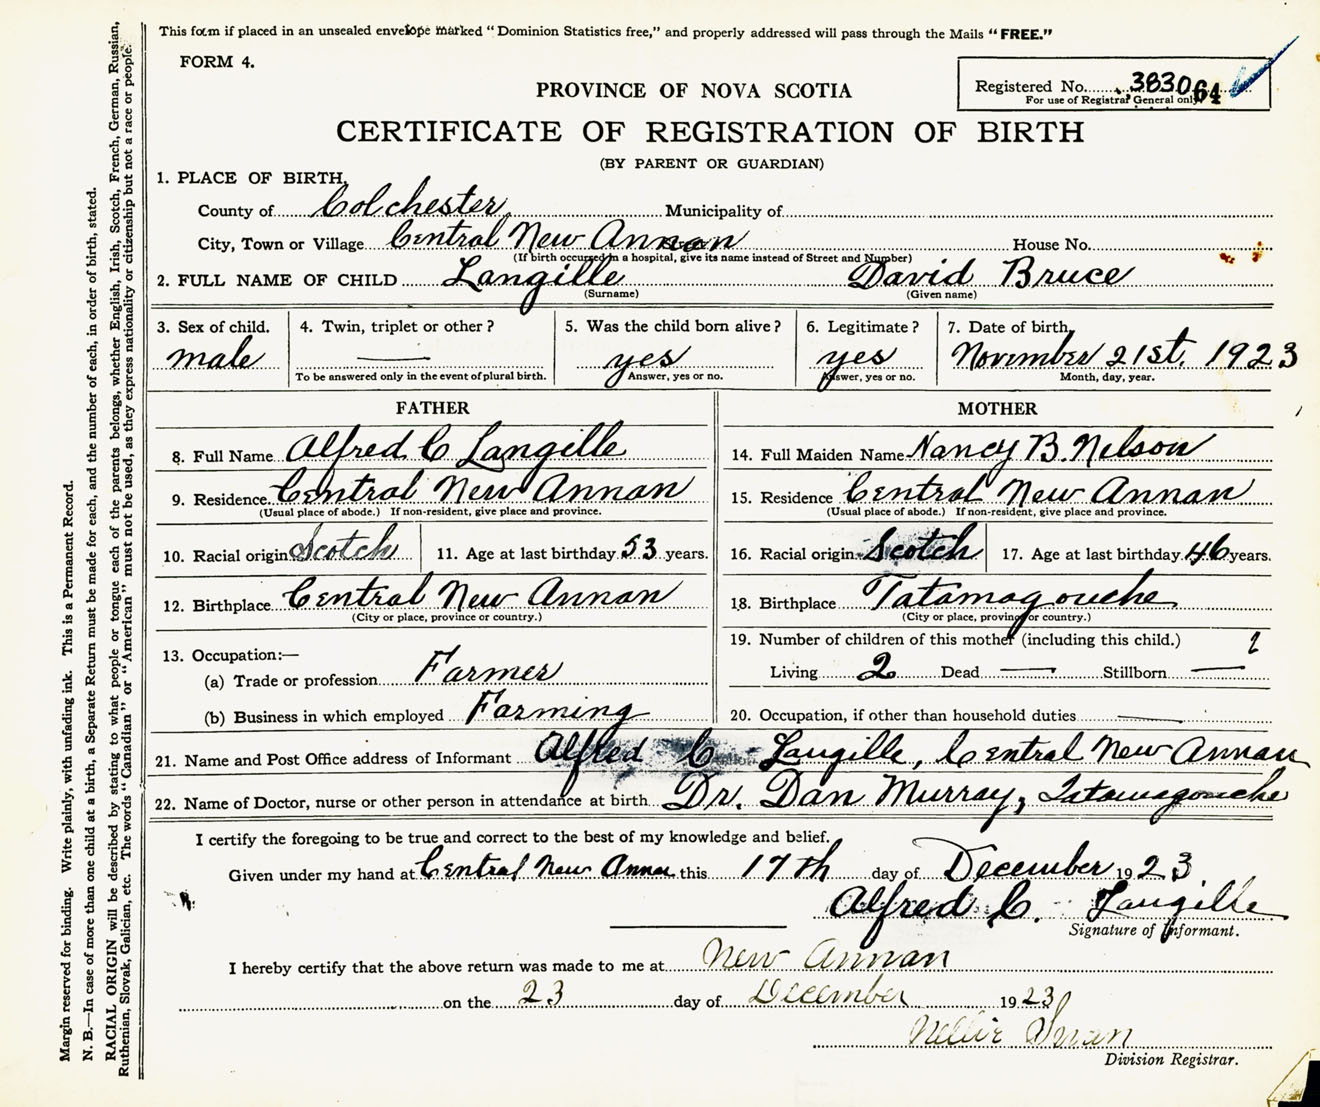 This form if placed in an unsealed envelope marked "Dominion Statistics free," and properly addressed will pass through the Mails "FREE."
FORM 4.
Registered No. 383064
For use of Registrar General only
PROVINCE OF NOVA SCOTIA
CERTIFICATE OF REGISTRATION OF BIRTH
(BY PARENT OR GUARDIAN)
1. PLACE OF BIRTH,
County of Colchester Municipality of
City, Town or Village Central New Annan House No.
(If birth occurred in a hospital, give its name instead of Street and Number)
2. FULL NAME OF CHILD Langille David Bruce
(Surname) (Given name)
3. Sex of child. 4. Twin, triplet or other? 5. Was the child born alive? 6. Legitimate? 7. Date of birth,
male — yes yes November 21st. 1923
To be answered only in the event of plural birth. Answer, yes or no. Answer, yes or no. Month, day, year.
FATHER MOTHER
8. Full Name Alfred C Langille 14. Full Maiden Name Nancy B. Nelson
9. Residence Central New Annan 15. Residence Central New Annan
(Usual place of abode.) If non-resident, give place and province. (Usual place of abode.) If non-resident, give place and province.
10. Racial origin Scotch 11. Age at last birthday 53 years. 16. Racial origin Scotch 17. Age at last birthday 46 years.
12. Birthplace Central New Annan 18. Birthplace Tatamagouche
(City or place, province or country.) (City or place, province or country.)
13. Occupation:— 19. Number of children of this mother (including this child.)
(a) Trade or profession Farmer Living 2 Dead — Stillborn —
(b) Business in which employed Farming 20. Occupation, if other than household duties —
21. Name and Post Office address of Informant Alfred C Langille, Central New Annan
22. Name of Doctor, nurse or other person in attendance at birth Dr. Dan Murray, Tatamagouche
I certify the foregoing to be true and correct to the best of my knowledge and belief.
Given under my hand at Central New Annan this 17th day of December 1923
Alfred C. Langille
Signature of Informant.
I hereby certify that the above return was made to me at New Annan
on the 23 day of December 1923
Nellie Swan
Division Registrar.
Margin reserved for binding. Write plainly, with unfading ink. This is a Permanent Record.
N. B.—In case of more than one child at a birth, a Separate Return must be made for each, and the number of each, in order of birth, stated.
RACIAL ORIGIN will be described by stating to what people or tongue each of the parents belongs, whether English, Irish, Scotch, French, German, Russian,
Ruthenian, Slovak, Galician, etc. The words "Canadian" or "American" must not be used, as they express nationality or citizenship but not a race or people.